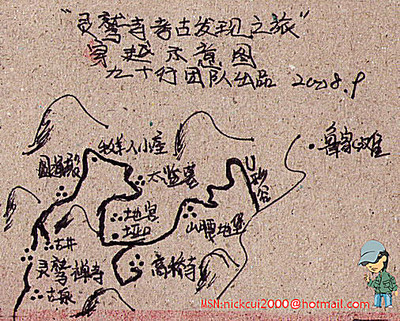 "灵鹫寺考古发现之旅"
穿越示意图
九十行团队出品 2008.9
鲁家滩
牧羊人小屋
太监墓
U形谷
地宫
垭口
山腰地堡
古井
灵鹫禅寺
高桥寺
古墓
MSN:nickcui2000@hotmail.com